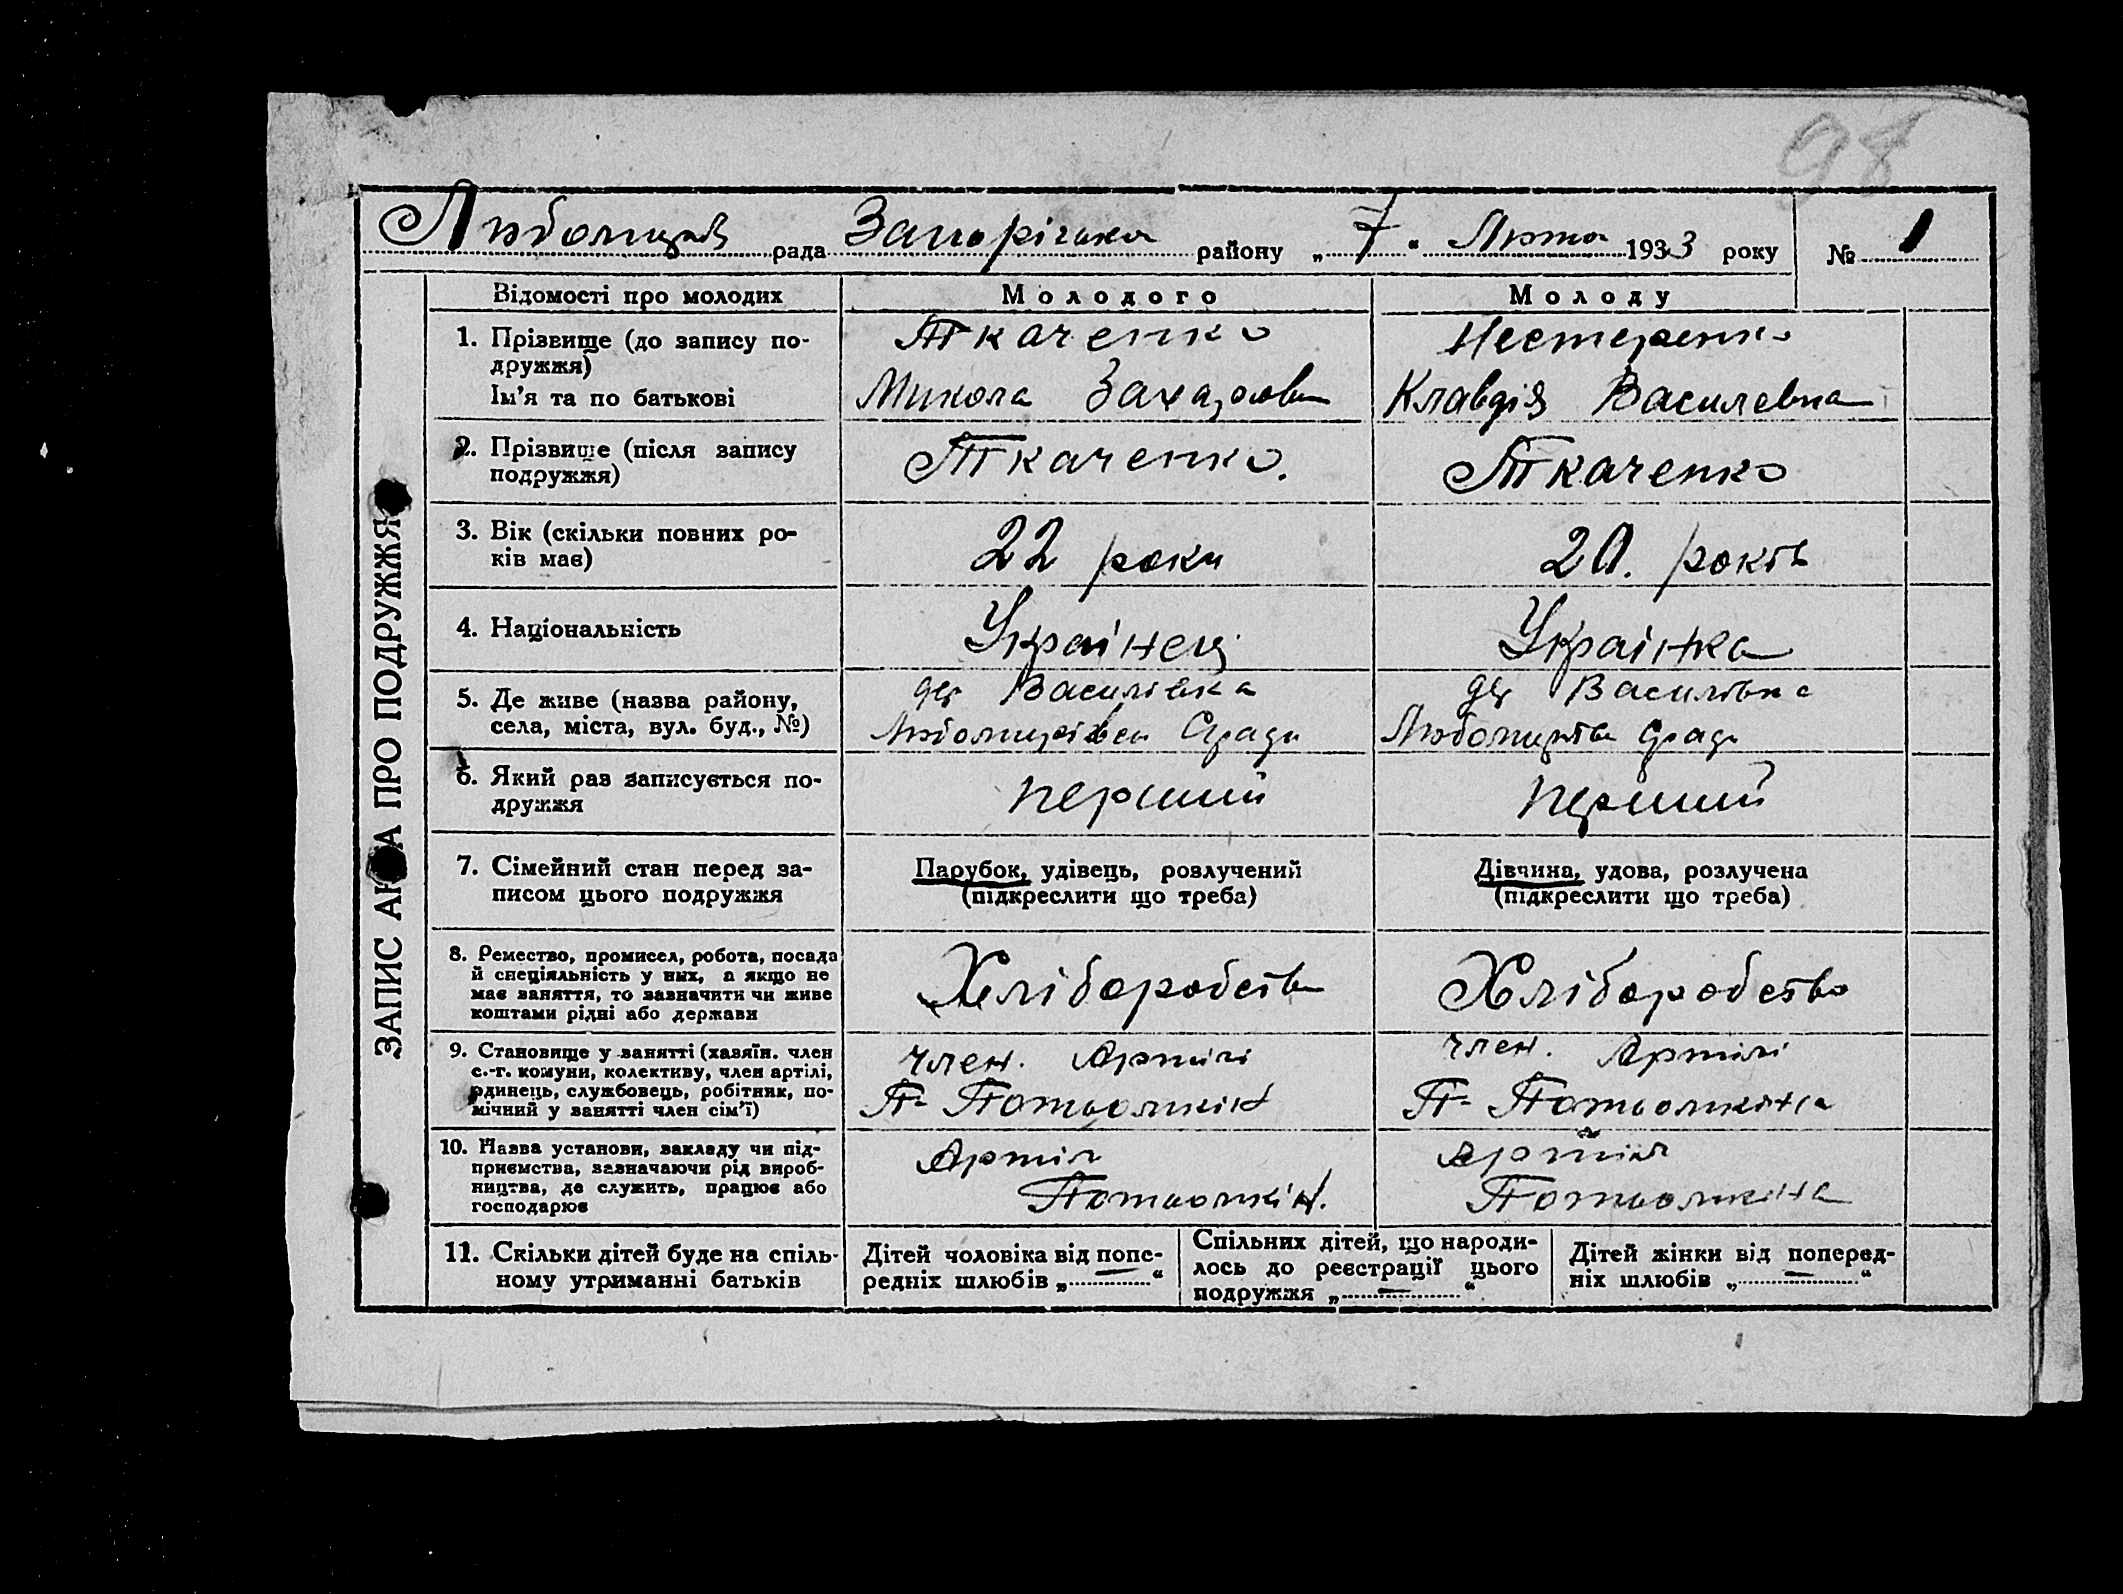 98
рада Запорізька району „ 7 " Лютого 1933 року № 1
ЗАПИС АКТА ПРО ПОДРУЖЖЯ
Відомості про молодих Молодого Молоду
1. Прізвище (до запису по-
дружжя)
Ім'я та по батькові
Ткаченко
Микола Захарович
Нестеренко
Клавдія Василевна
2. Прізвище (після запису
подружжя)
Ткаченко.
Ткаченко
3. Вік (скільки повних ро-
ків має)
22 роки
20. років
4. Національність
Українец
Українка
5. Де живе (назва району,
села, міста, вул. буд., №)
дер Василівка
Любомирівск Сради
дер Василівка
Любомирівск Сради
6. Який раз записується по-
дружжя
перший
перший
7. Сімейний стан перед за-
писом цього подружжя
Парубок, удівець, розлучений
(підкреслити що треба)
Дівчина, удова, розлучена
(підкреслити що треба)
8. Ремество, промисел, робота, посада
й спеціяльність у них, а якщо не
має заняття, то зазначити чи живе
коштами рідні або держави
Хліборобство
Хліборобство
9. Становище у занятті (хазяїн. член
с.-г. комуни, колективу, член артілі,
одинець, службовець, робітник, по-
мічний у занятті член сім'ї)
член. Артілі
П- Потьомкін
член. Артілі
П- Потьомкіна
10. Назва установи, закладу чи під-
приємства, зазначаючи рід вироб-
ництва, де служить, працює або
господарює
Артіл
Потьомкін.
Артіл
Потьомкіна
11. Скільки дітей буде на спіль-
ному утриманні батьків
Дітей чоловіка від попе-
редніх шлюбів „ — "
Спільних дітей, що народи-
лось до реєстрації цього
подружжя „ — "
Дітей жінки від поперед-
ніх шлюбів „ — "